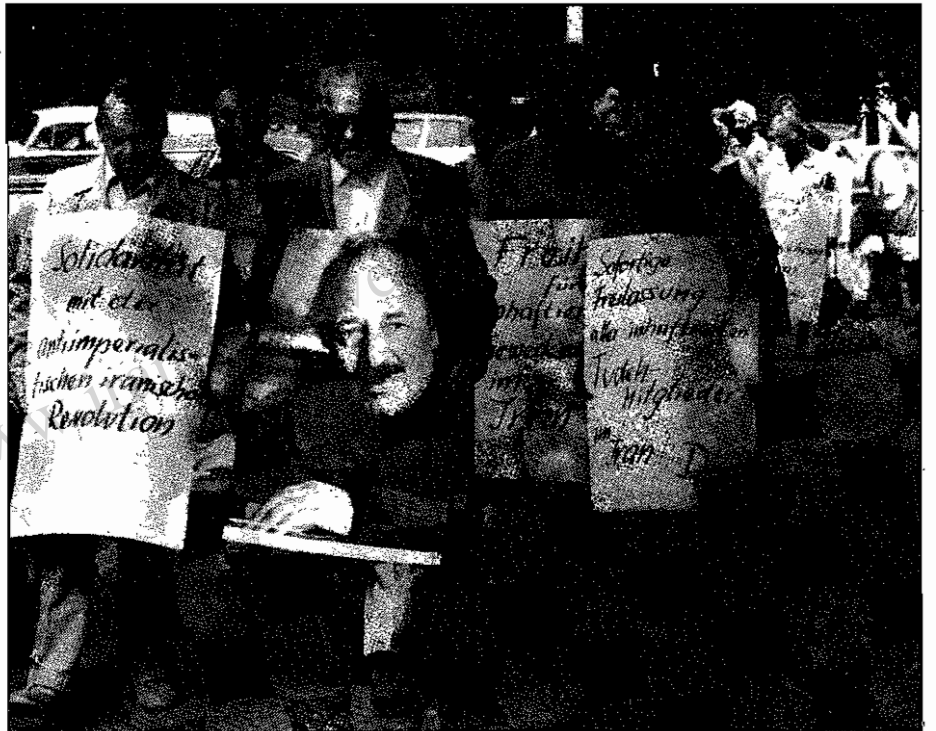 Solidarität
mit der
antiimperialis-
tischen iranischen
Revolution
Freih
für
nhaftier
im
Iran
Sofortige
Freilassung
aller inhaftierten
Tudeh-
Mitglieder
im
Iran